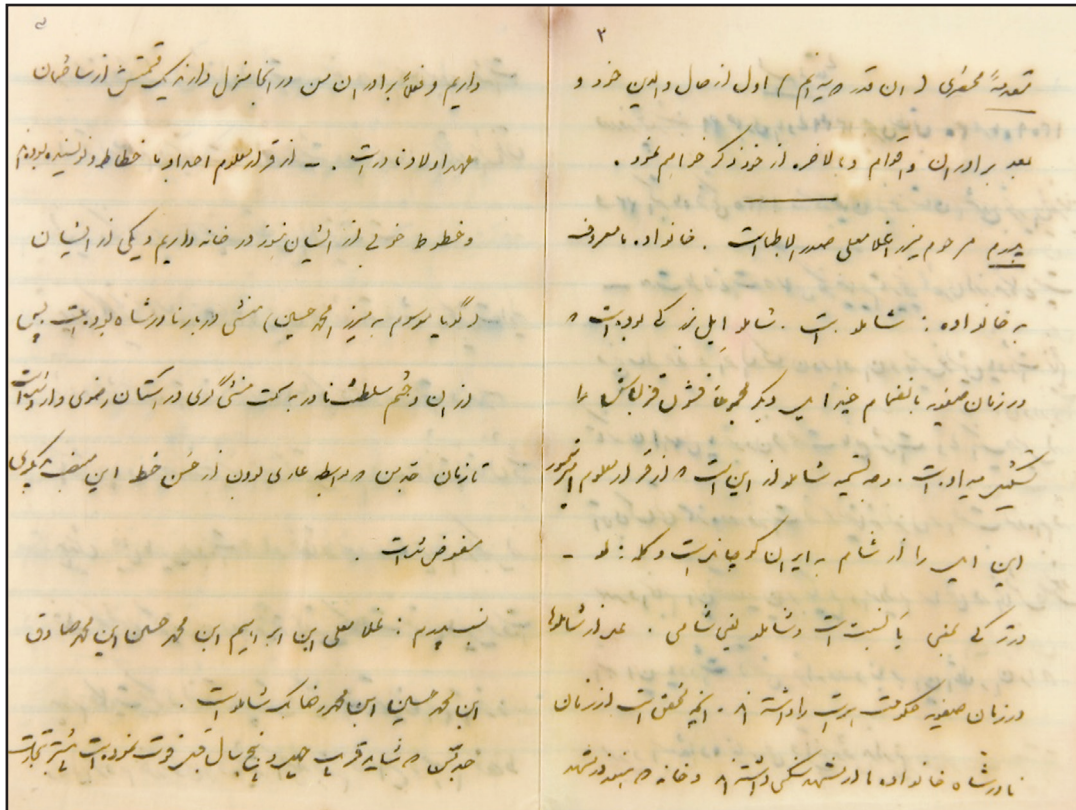 ۳
مقدمةً مختصری (آن قدر که یادم) اول از حال والدین خود و
بعد برادران و اخوام و بالاخره از خود ذکر خواهم نمود.
پدرم مرحوم میرزا غلامعلی صدرالاطباست. خانواده ما معروف
به خانواده: شاملو است. شاملو ایل بزرگی بوده است که
در زمان صفویه بانضمام چند ایل دیگر مجموعاً قشون قزلباش را
تشکیل میداده است. وجه تسمیه شاملو از این است که از قرار معلوم امیرتیمور
این ایل را از شام به ایران کوچانده است و کلمه: لو -
در ترکی بمعنی یاء نسبت است و شاملو یعنی شامی. عده‌ از شاملوها
در زمان صفویه حکومت هرات را داشته‌اند. آنچه محقق است از زمان
نادرشاه خانواده ما در مشهد سکنی داشته‌اند و خانه که هنوز در مشهد
داریم و فعلاً برادران من در آنجا منزل دارند یک قسمتش از ساختمان
عهد اولاد نادر است. - از قرار معلوم اجداد ما خطاط و نویسنده بوده‌اند
و خطوط خوبی از ایشان هنوز در خانه داریم و یکی از ایشان
(گویا موسوم به میرزا محمد حسین) منشی دربار نادرشاه بوده است پس
از آن و ختم سلطنت نادر به سمت منشی‌گری در آستان رضوی وارد شده است
تا زمان جد من که بواسطه عاری بودن از حسن خط این منصب بدیگری
مفوض شده است.
نسب پدرم: غلامعلی ابن ابراهیم ابن محمد حسین ابن محمد صادق
ابن محمد حسین ابن محمد رضا بیک شاملو است.
جد من که شاید قریب چهل و پنج سال قبل فوت نموده است بیشتر بتجارت